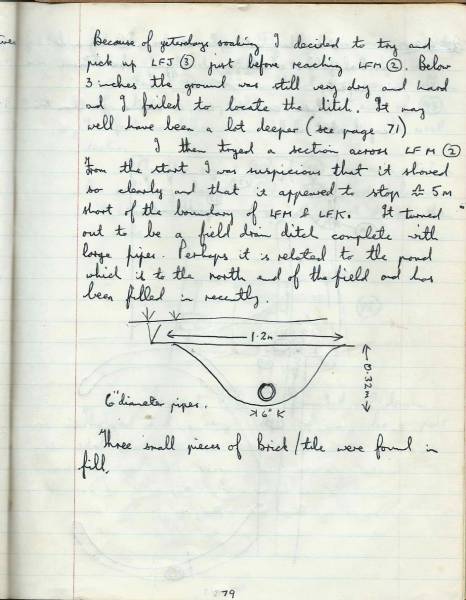 Because of yesterdays soaking I decided to try and
pick up LFJ ③ just before reaching LFM ②. Below
3 inches the ground was still very dry and hard
and I failed to locate the ditch. It may
well have been a lot deeper (see page 71)
I then tryed a section across LFM ②
From the start I was suspicious that it showed
so clearly and that it appeared to stop ≏ 5m
short of the boundary of LFM & LFK. It turned
out to be a field drain ditch complete with
large pipes. Perhaps it is related to the pond
which is to the north end of the field and has
been filled in recently.
1.2m
0.32m
6" diameter pipes.
6"
Three small pieces of Brick/tile were found in
fill.
79